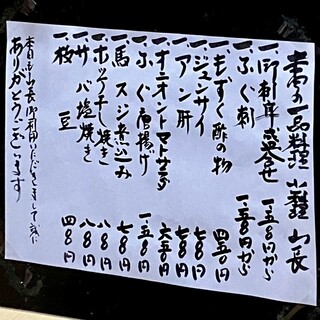 本日の一品料理 小料理 山長
一、御刺身盛合せ 一、五〇〇円から
一、ふぐ刺 一、五〇〇円から
一、もずく酢の物 四五〇円
一、ジュンサイ 七五〇円
一、アン肝 七八〇円
一、オニオントマトサラダ 六五〇円
一、ふぐ唐揚げ 一、五〇〇円
一、馬スジ煮込み 七八〇円
一、ホッケ干し焼き 八八〇円
一、サバ塩焼き 八八〇円
一、枝豆 四八〇円
本日も山長御利用いただきまして誠に
ありがとうございます